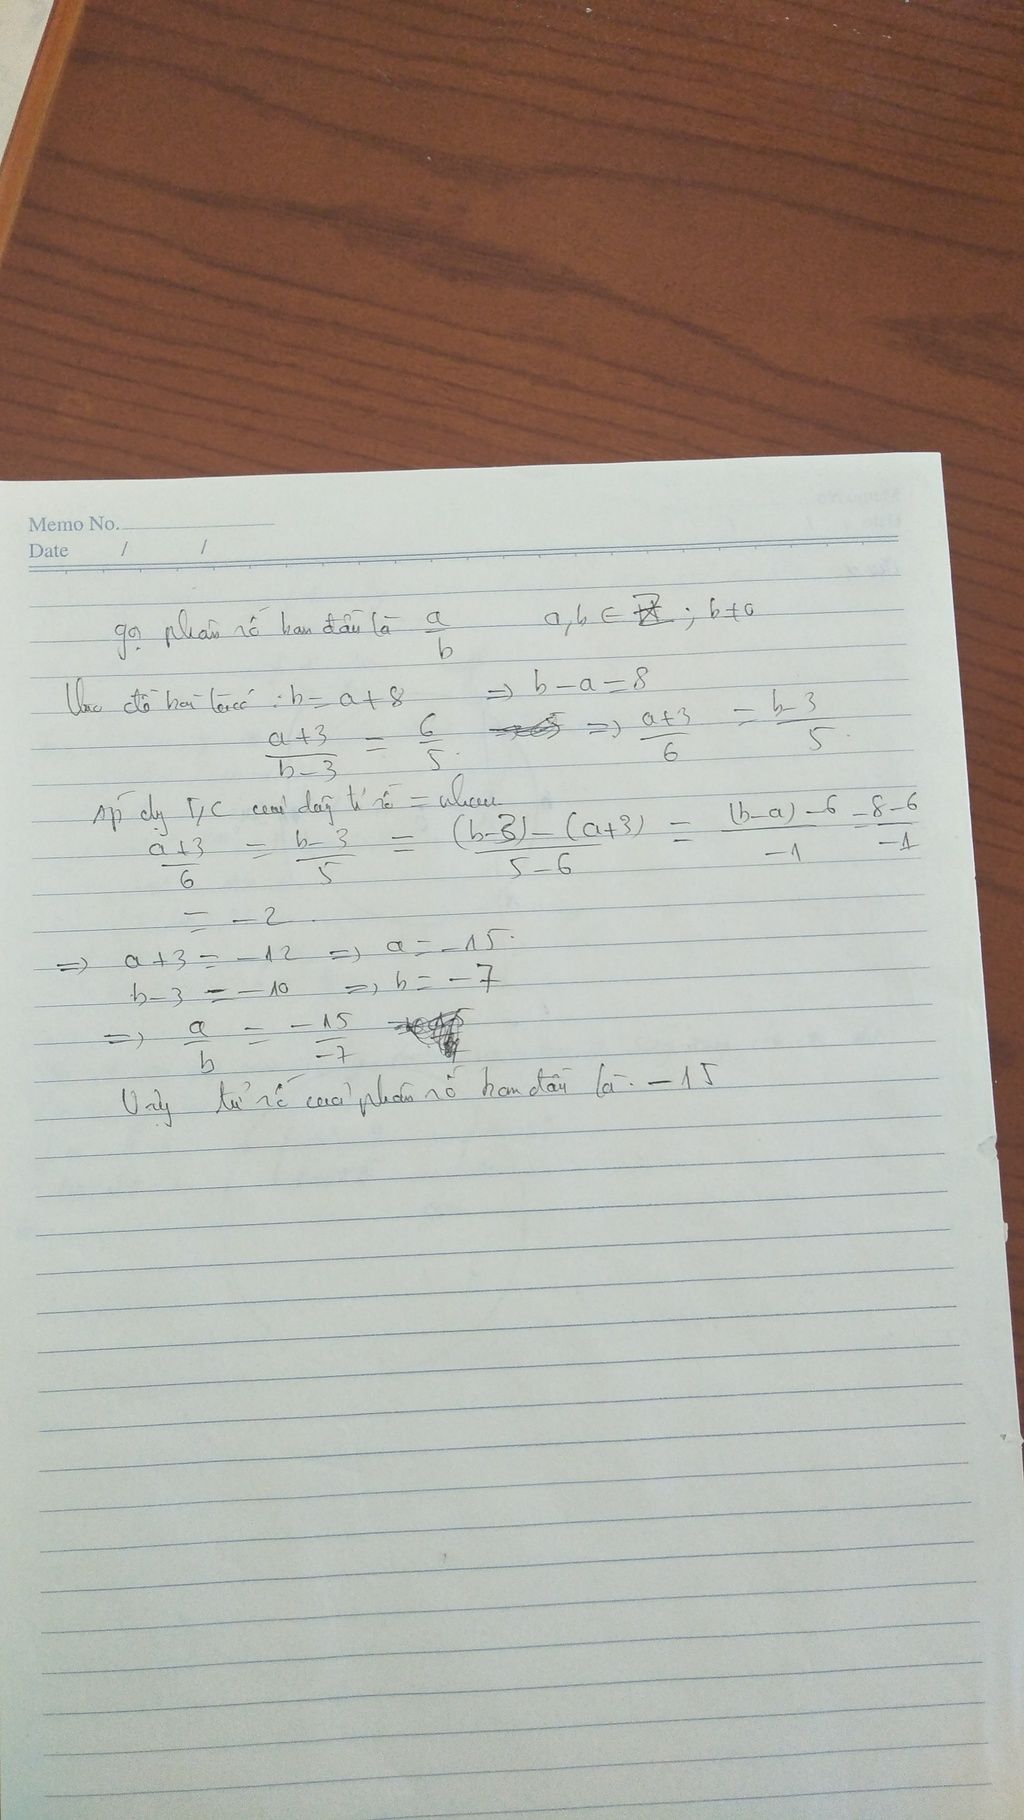 Memo No.
Date / /
gọi phân số ban đầu là a/b a, b ∈ Z ; b ≠ 0
Theo đề bài ta có : b = a + 8 => b - a = 8
(a+3)/(b-3) = 6/5 => (a+3)/6 = (b-3)/5
Áp dg T/C của dãy tỉ số = nhau
(a+3)/6 = (b-3)/5 = ((b-3) - (a+3))/(5-6) = ((b-a) - 6)/-1 = (8-6)/-1
= -2
=> a+3 = -12 => a = -15
b-3 = -10 => b = -7
=> a/b = -15/-7
Vậy tử số của phân số ban đầu là -15